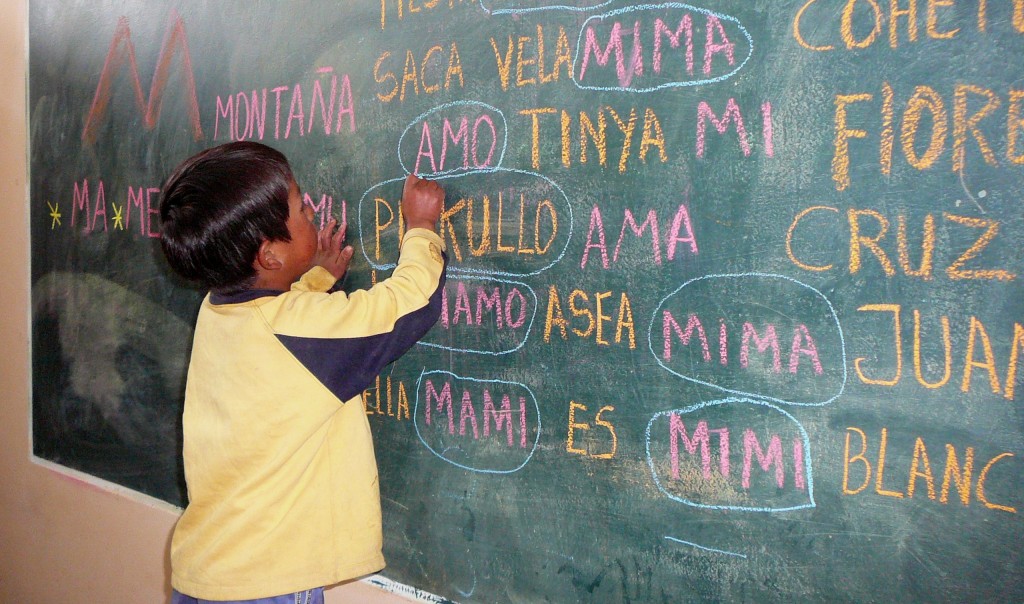 M
SACA VELA MIMA
MONTAÑA AMO TINYA MI FIORE
* MA * ME MU KULLO AMA CRUZ
AMO ASEA MIMA JUAN
ELLA MAMI ES MIMI BLANC